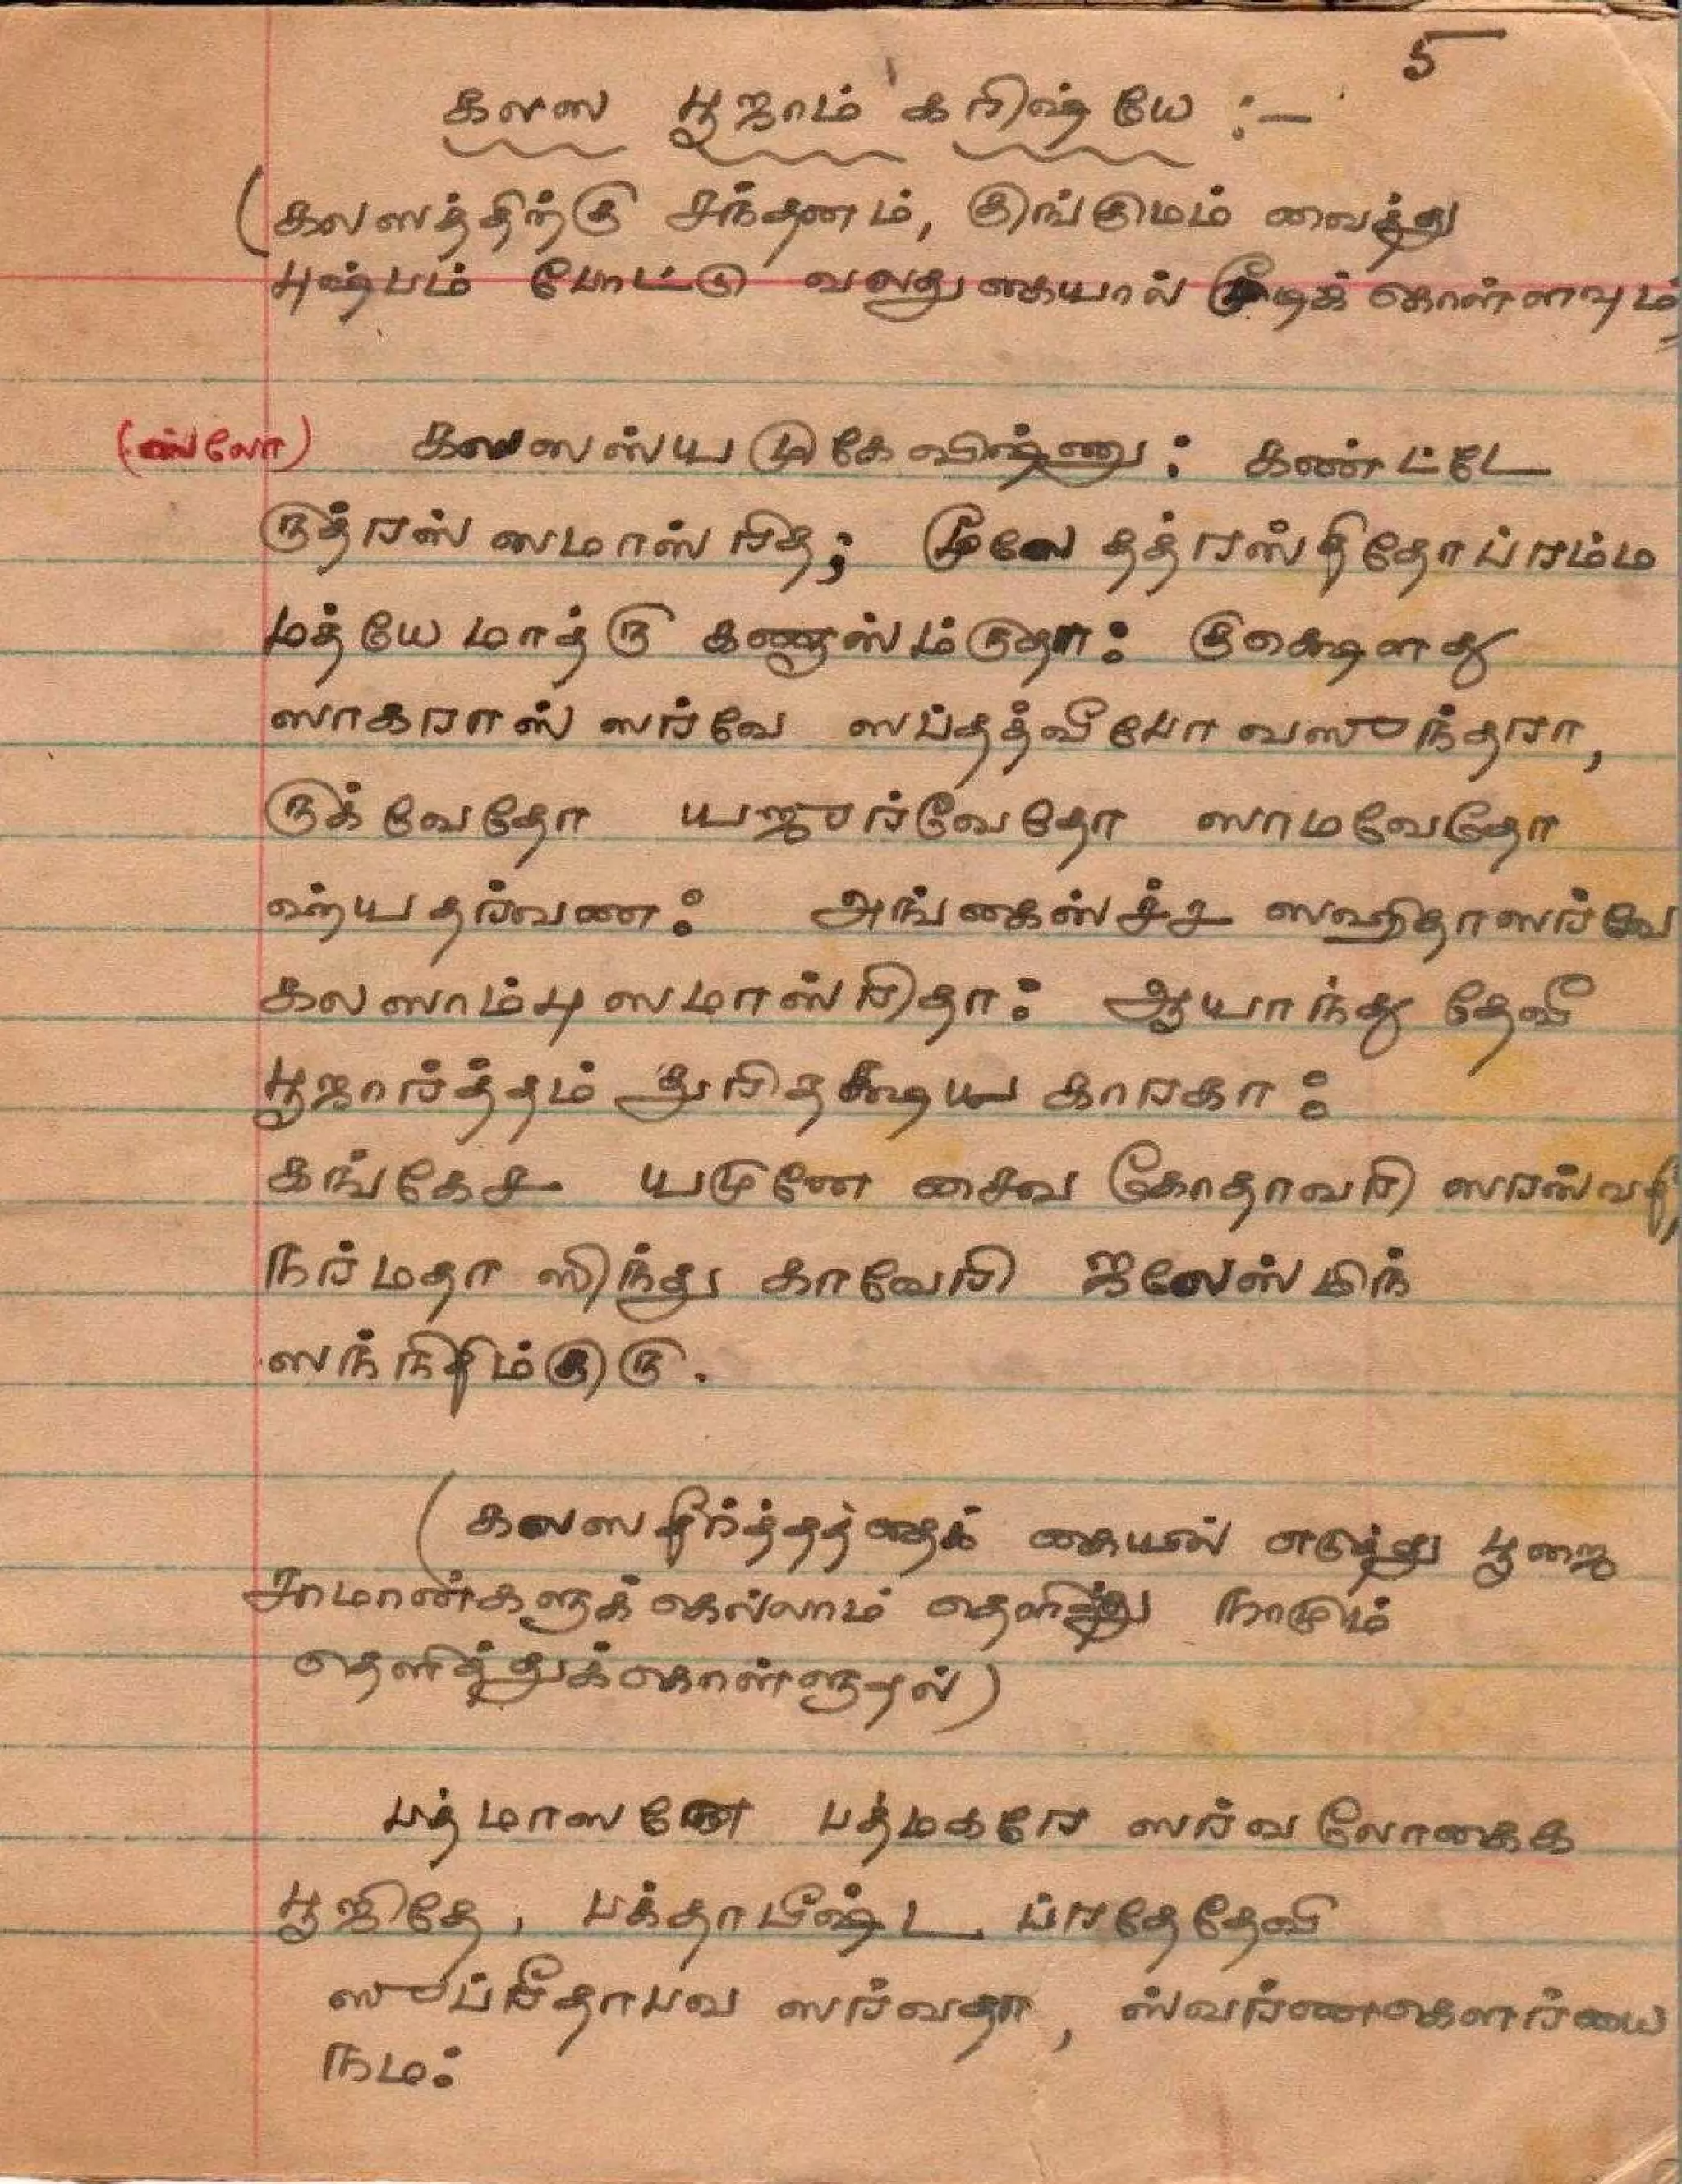 5
கலஸ பூஜாம் கரிஷ்யே :-
(கலஸத்திற்கு சந்தணம், குங்குமம் வைத்து
புஷ்பம் போட்டு வலது கையால் மூடிக் கொள்ளவும்)
(ஸ்லோ) கலஸஸ்ய முகே விஷ்ணு: கண்ட்டே
ருத்ரஸ் ஸமாஸ்ரித; மூலே தத்ரஸ்திதோ ப்ரம்ம
மத்யே மாத்ரு கணாஸ்ம்ருதா: குக்ஷௌது
ஸாகராஸ் ஸர்வே ஸப்தத்வீபோ வஸுந்தரா,
ருக்வேதோ யஜுர்வேதோ ஸாமவேதோ
ஹ்யதர்வண: அங்கைஸ்ச்ச ஸஹிதாஸர்வே
கலஸாம்பு ஸமாஸ்ரிதா: ஆயாந்து தேவீ
பூஜார்த்தம் துரிதக்ஷய காரகா:
கங்கேச யமுனே சைவ கோதாவரி ஸரஸ்வதி,
நர்மதா ஸிந்து காவேரி ஜலேஸ்மிந்
ஸந்நிதிம்குரு.
(கலஸ தீர்த்தத்தைக் கையில் எடுத்து பூஜை
சாமான்களுக்கெல்லாம் தெளித்து நாமும்
தெளித்துக்கொள்ளுதல்)
பத்மாஸனே பத்மகரே ஸர்வ லோகைக
பூஜிதே, பக்தாபீஷ்ட ப்ரதேதேவி
ஸுப்ரீதாபவ ஸர்வதா, ஸ்வர்ணகௌர்யை
நம: